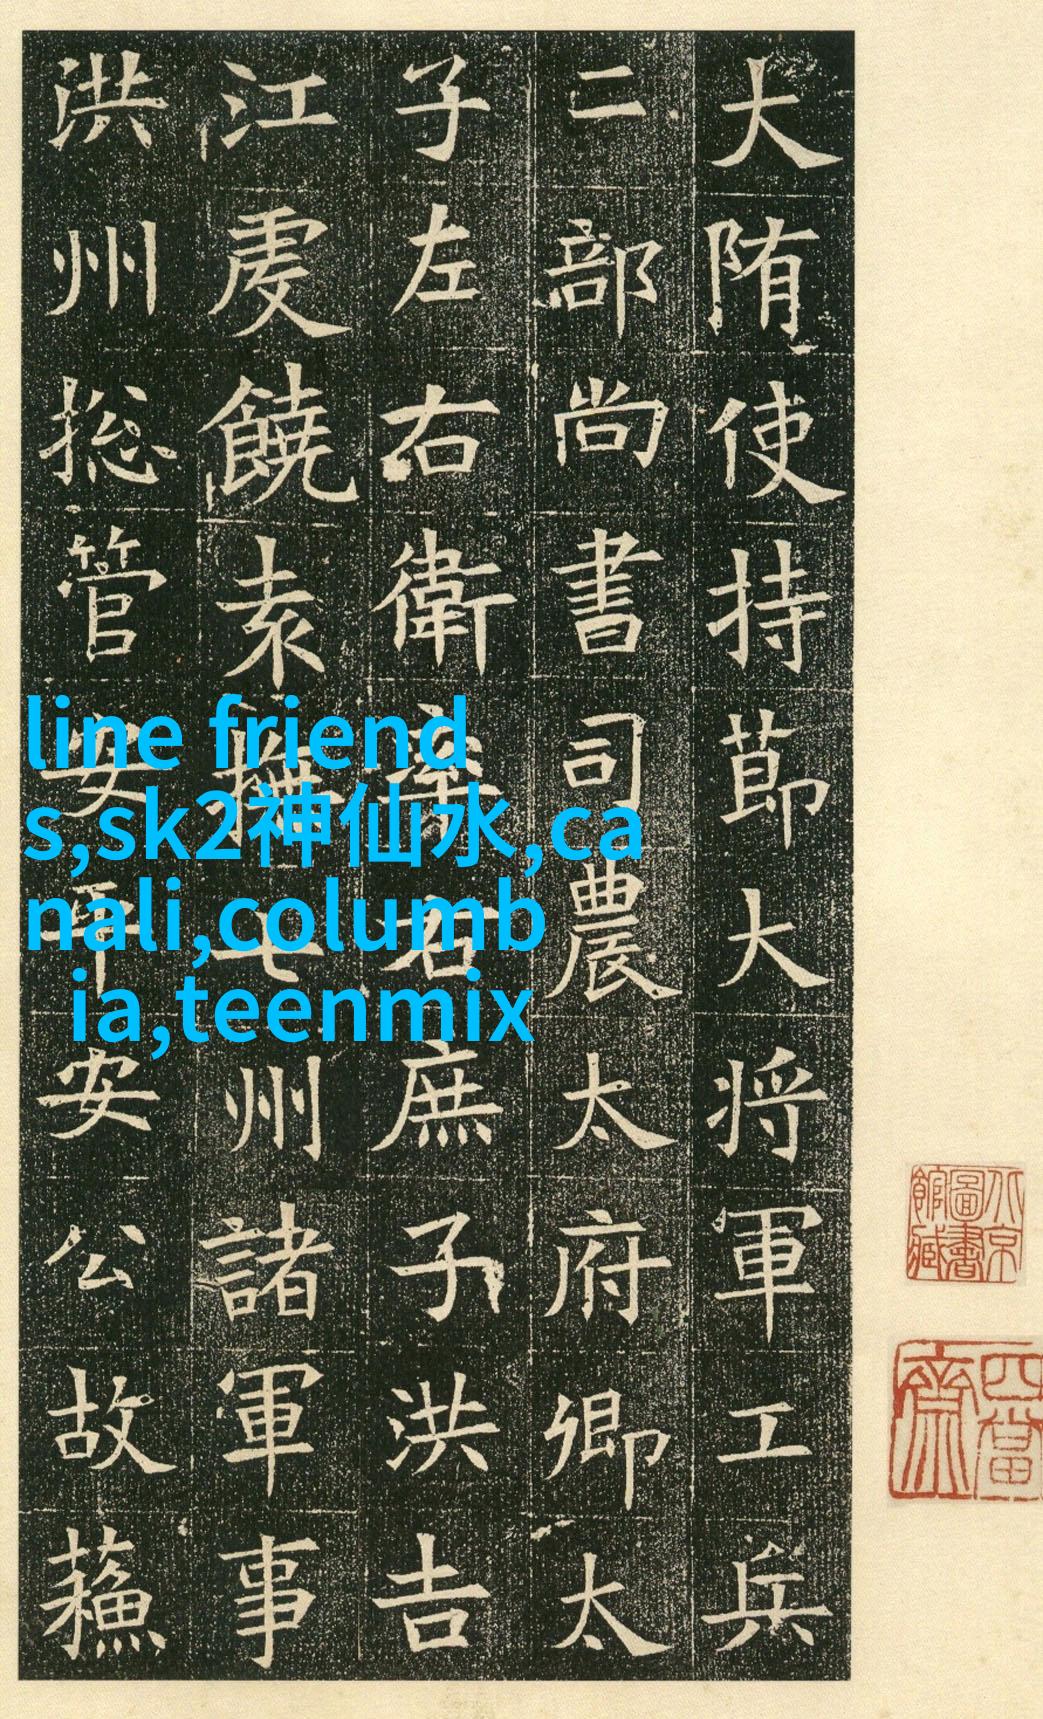 大隋使持節大将軍工兵
二部尚書司農太府卿太
子左右衛率右庶子洪吉
江虔饒袁撫七州諸軍事
洪州総管安平安公故蘓
line friend
s,sk2神仙水,ca
nali,columb
ia,teenmix
北京圖書館藏
四當齋